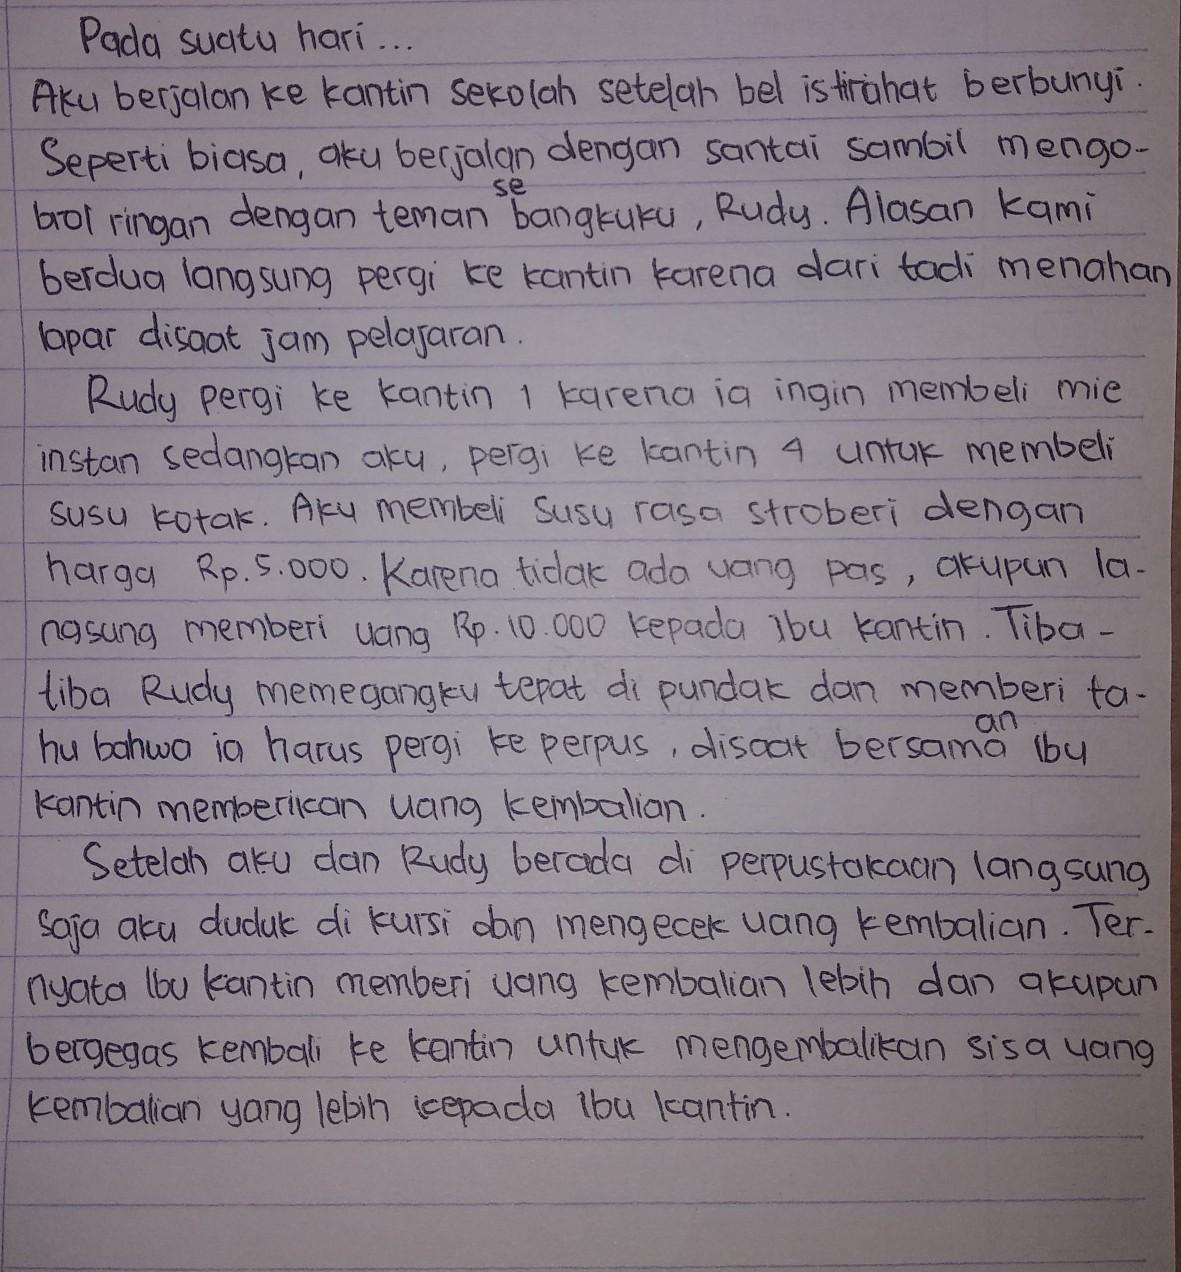 Pada suatu hari...
Aku berjalan ke kantin sekolah setelah bel istirahat berbunyi.
Seperti biasa, aku berjalan dengan santai sambil mengo-
brol ringan dengan teman sebangkuku, Rudy. Alasan kami
berdua langsung pergi ke kantin karena dari tadi menahan
lapar disaat jam pelajaran.
Rudy pergi ke kantin 1 karena ia ingin membeli mie
instan sedangkan aku, pergi ke kantin 4 untuk membeli
susu kotak. Aku membeli susu rasa stroberi dengan
harga Rp.5.000. Karena tidak ada uang pas, akupun la-
ngsung memberi uang Rp.10.000 kepada Ibu kantin. Tiba-
tiba Rudy memegangku tepat di pundak dan memberi ta-
hu bahwa ia harus pergi ke perpus, disaat bersamaan Ibu
kantin memberikan uang kembalian.
Setelah aku dan Rudy berada di perpustakaan langsung
saja aku duduk di kursi dan mengecek uang kembalian. Ter-
nyata Ibu kantin memberi uang kembalian lebih dan akupun
bergegas kembali ke kantin untuk mengembalikan sisa uang
kembalian yang lebih kepada Ibu kantin.